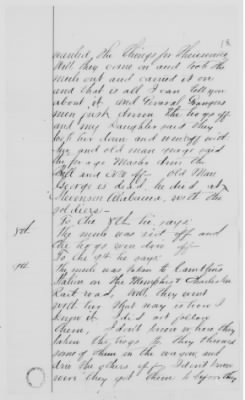 18
wanted the things for themselves
Well they come in and took the
mule out and carried it on
and that is all I can tell you
about it and General Grangers
men just driven the hogs off
and my Daughter said they
took her down and went off with
her and old man George said
the forage Master driv the
off - Old Man
George is dead, he died at
Stevenson Alabama, with the
soldiers -
To the 8th he says:
8th. The mule was rid off and
the hogs were driv off -
To the 9th he says:
9th. The mule was taken to
Station on the Memphis & Charleston
Rail road, Well, they went
with her that way is how I
know it I did not follow
them, I don't know where they
taken the hogs to they throwed
some of them in the wagon, and
driv the others off I don't know
how they got them to before they